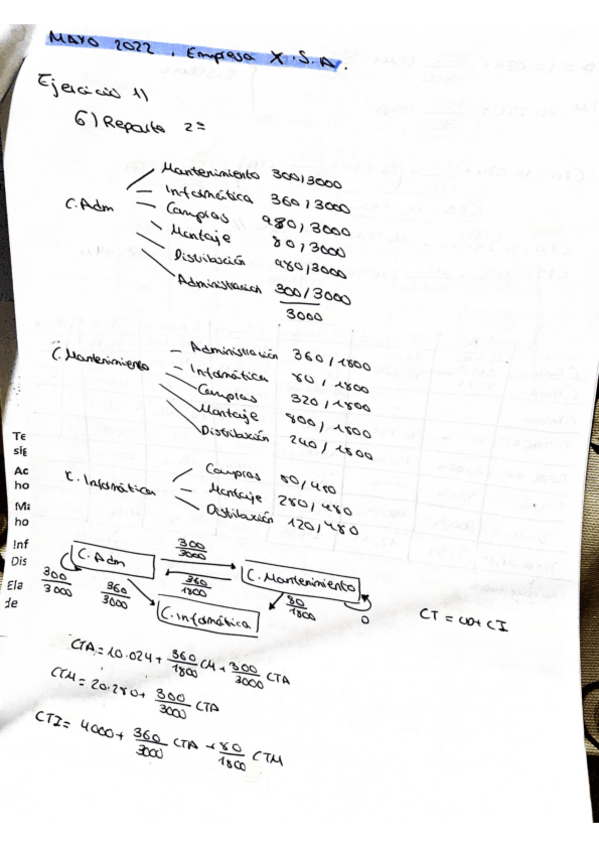 MAYO 2022. Empresa X.S.A.
Ejercicio 1)
6) Reparto 2º
C.Adm
Mantenimiento 300/3000
Informática 360/3000
Compras 980/3000
Montaje 80/3000
Distribución 980/3000
Administración 300/3000
3000
C.Mantenimiento
Administración 360/1800
Informática 80/1800
Compras 320/1800
Montaje 800/1800
Distribución 240/1800
C. Informática
Compras 80/480
Montaje 280/480
Distribución 120/480
Te
sig
Ac
ho
Ma
ho
Inf
Dis
Ela
de
C. Adm
300/3000
360/1800
C. Mantenimiento
300/3000
360/3000
80/1800
0
C. Informática
CTA = 10.024 + 360/1800 CM + 300/3000 CTA
CTM = 20.280 + 300/3000 CTA
CTI = 4000 + 360/3000 CTA + 80/1800 CTM